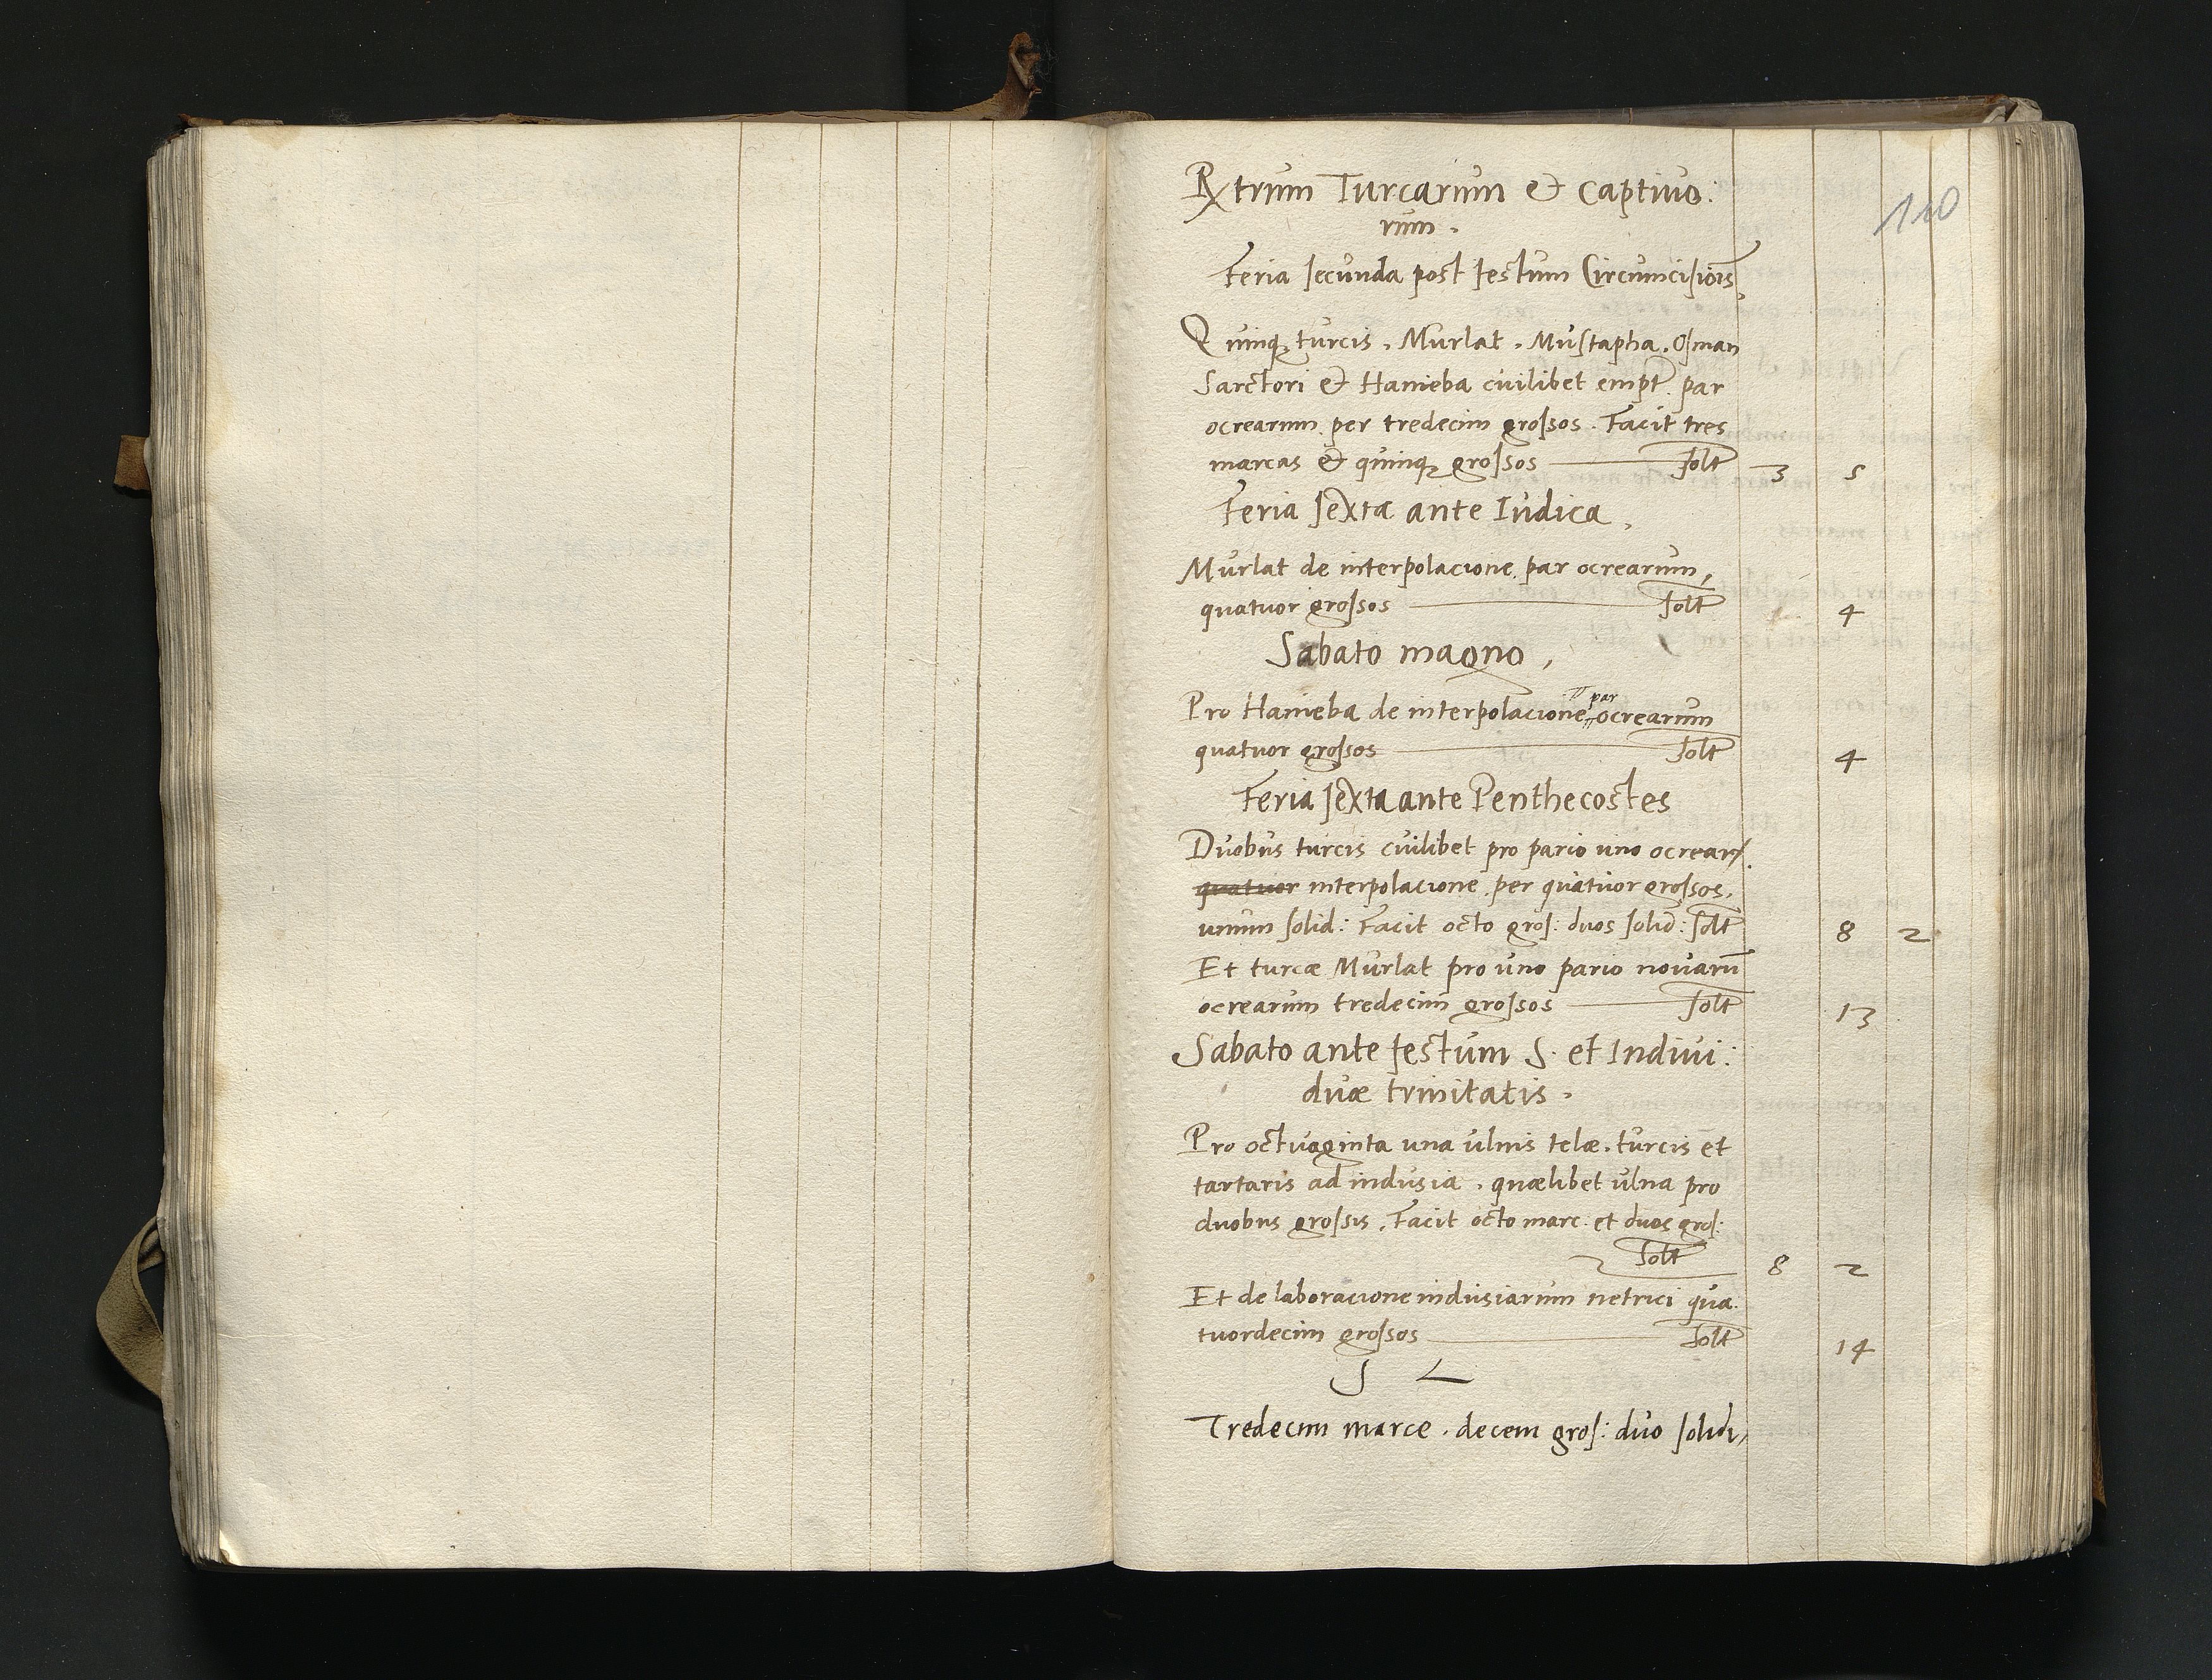 110
Rxtrum Turcarum & captivo:
rum.
Feria secunda post festum Circumcisiois,
Quinq, turcis. Murlat. Mustapha. Osman
Sarctori & Hanieba cuilibet empt. par
ocrearum per tredecim grossos. Facit tres
marcas & quinq, grossos — solt 3 5
Feria sexta ante Iudica,
Murlat de interpolacione par ocrearum,
quatuor grossos — solt 4
Sabato magno,
Pro Hanieba de interpolacione par ocrearum
quatuor grossos — solt 4
Feria sexta ante Penthecostes
Duobus turcis cuilibet pro pario uno ocrear.
quatuor interpolacione per quatuor grossos,
unum solid: Facit octo gros: duos solid: solt 8 2
Et turcæ Murlat pro uno pario novarū
ocrearum tredecim grossos — solt 13
Sabato ante festum S. et Indivi:
duæ trinitatis.
Pro octuaginta una ulnis telæ. turcis et
tartaris ad indusia. quælibet ulna pro
duobus grossis. Facit octo marc. et duos gros:
solt 8 2
Et de laboracione indusiarum netrici qua.
tuordecim grossos — solt 14
S L
Tredecim marce. decem gros: duo solidi,